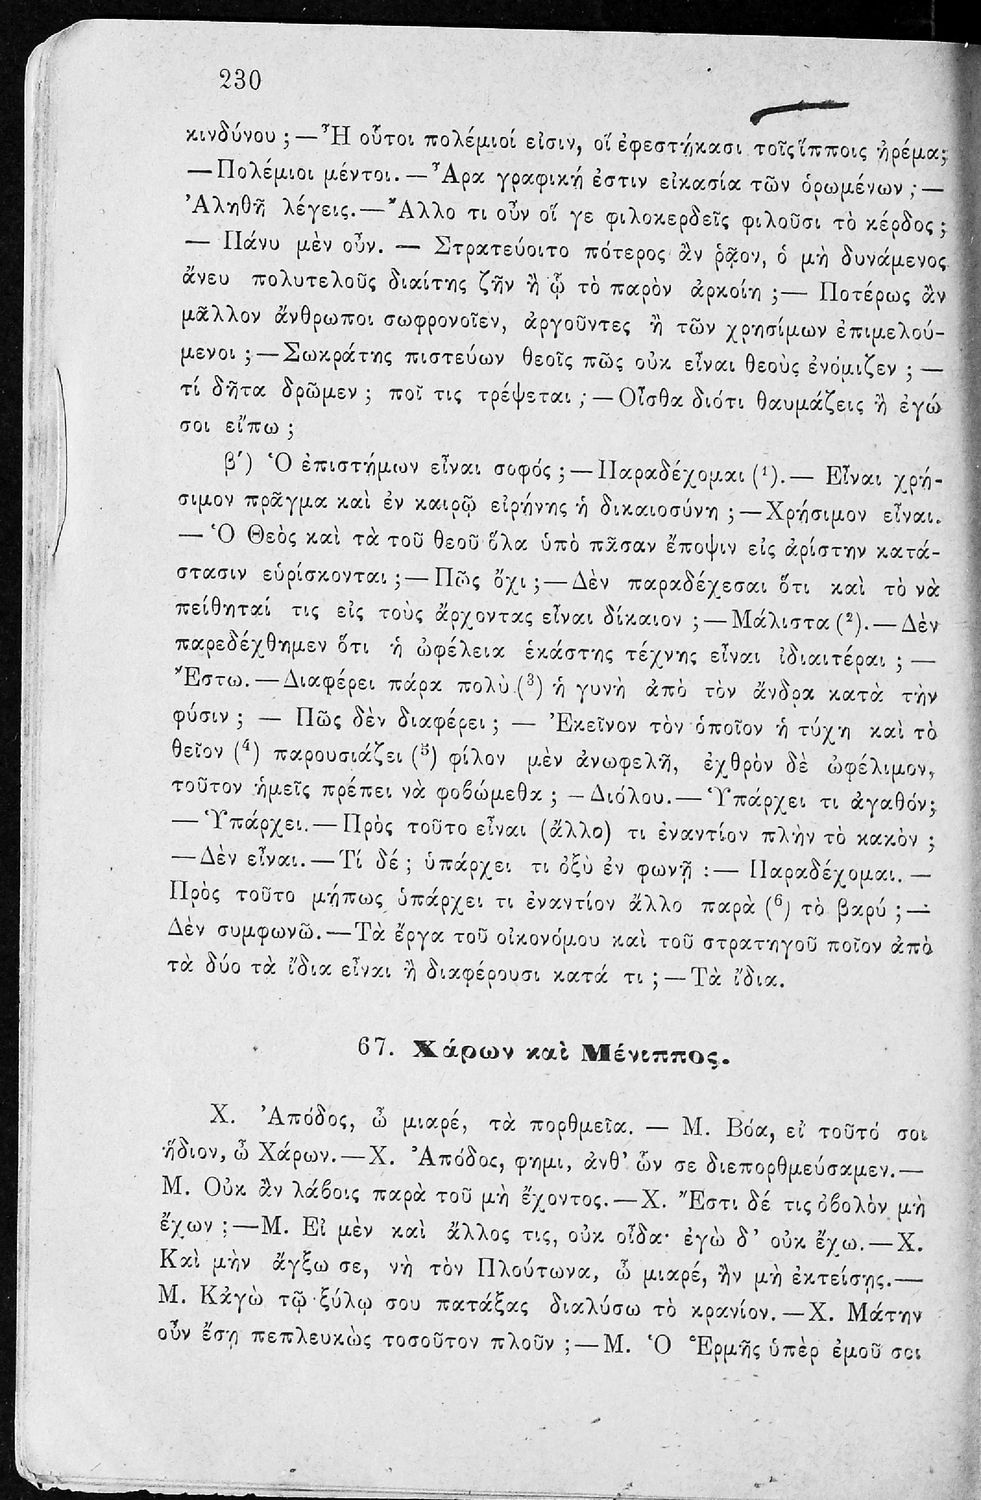 230
κινδύνου ; — Ἦ οὗτοι πολέμιοί εἰσιν, οἵ ἐφεστήκασι τοῖς ἵπποις ἠρέμα;
— Πολέμιοι μέντοι. — Ἆρα γραφική ἐστιν εἰκασία τῶν ὁρωμένων ; —
Ἀληθῆ λέγεις. — Ἄλλο τι οὖν οἵ γε φιλοκερδεῖς φιλοῦσι τὸ κέρδος ;
— Πάνυ μὲν οὖν. — Στρατεύοιτο πότερος ἂν ῥᾷον, ὁ μὴ δυνάμενος
ἄνευ πολυτελοῦς διαίτης ζῆν ἢ ᾧ τὸ παρὸν ἀρκοίη ; — Ποτέρως ἂν
μᾶλλον ἄνθρωποι σωφρονοῖεν, ἀργοῦντες ἢ τῶν χρησίμων ἐπιμελού-
μενοι ; — Σωκράτης πιστεύων θεοῖς πῶς οὐκ εἶναι θεοὺς ἐνόμιζεν ; —
τί δῆτα δρῶμεν ; ποῖ τις τρέψεται ; — Οἶσθα διότι θαυμάζεις ἢ ἐγώ
σοι εἴπω ;
β′) Ὁ ἐπιστήμων εἶναι σοφός ; — Παραδέχομαι (¹). — Εἶναι χρή-
σιμον πρᾶγμα καὶ ἐν καιρῷ εἰρήνης ἡ δικαιοσύνη ; — Χρήσιμον εἶναι.
— Ὁ Θεὸς καὶ τὰ τοῦ θεοῦ ὅλα ὑπὸ πᾶσαν ἔποψιν εἰς ἀρίστην κατά-
στασιν εὑρίσκονται ; — Πῶς ὄχι ; — Δὲν παραδέχεσαι ὅτι καὶ τὸ νὰ
πείθηταί τις εἰς τοὺς ἄρχοντας εἶναι δίκαιον ; — Μάλιστα (²). — Δὲν
παρεδέχθημεν ὅτι ἡ ὠφέλεια ἑκάστης τέχνης εἶναι ἰδιαιτέραι ; —
Ἔστω. — Διαφέρει πάρα πολὺ (³) ἡ γυνὴ ἀπὸ τὸν ἄνδρα κατὰ τὴν
φύσιν ; — Πῶς δὲν διαφέρει ; — Ἐκεῖνον τὸν ὁποῖον ἡ τύχη καὶ τὸ
θεῖον (⁴) παρουσιάζει (⁵) φίλον μὲν ἀνωφελῆ, ἐχθρὸν δὲ ὠφέλιμον,
τοῦτον ἡμεῖς πρέπει νὰ φοβώμεθα ; — Διόλου. — Ὑπάρχει τι ἀγαθόν;
— Ὑπάρχει. — Πρὸς τοῦτο εἶναι (ἄλλο) τι ἐναντίον πλὴν τὸ κακὸν ;
— Δὲν εἶναι. — Τί δέ ; ὑπάρχει τι ὀξὺ ἐν φωνῇ : — Παραδέχομαι. —
Πρὸς τοῦτο μήπως ὑπάρχει τι ἐναντίον ἄλλο παρὰ (⁶) τὸ βαρύ ; —
Δὲν συμφωνῶ. — Τὰ ἔργα τοῦ οἰκονόμου καὶ τοῦ στρατηγοῦ ποῖον ἀπὸ
τὰ δύο τὰ ἴδια εἶναι ἢ διαφέρουσι κατά τι ; — Τὰ ἴδια.
67. Χάρων καὶ Μένιππος.
Χ. Ἀπόδος, ὦ μιαρέ, τὰ πορθμεῖα. — Μ. Βόα, εἰ τοῦτό σοι
ἥδιον, ὦ Χάρων. — Χ. Ἀπόδος, φημι, ἀνθ’ ὧν σε διεπορθμεύσαμεν. —
Μ. Οὐκ ἂν λάβοις παρὰ τοῦ μὴ ἔχοντος. — Χ. Ἔστι δέ τις ὀβολὸν μὴ
ἔχων ; — Μ. Εἰ μὲν καὶ ἄλλος τις, οὐκ οἶδα· ἐγὼ δ’ οὐκ ἔχω. — Χ.
Καὶ μὴν ἄγξω σε, νὴ τὸν Πλούτωνα, ὦ μιαρέ, ἢν μὴ ἐκτείσῃς. —
Μ. Κἀγὼ τῷ ξύλῳ σου πατάξας διαλύσω τὸ κρανίον. — Χ. Μάτην
οὖν ἔσῃ πεπλευκὼς τοσοῦτον πλοῦν ; — Μ. Ὁ Ἑρμῆς ὑπὲρ ἐμοῦ σοι